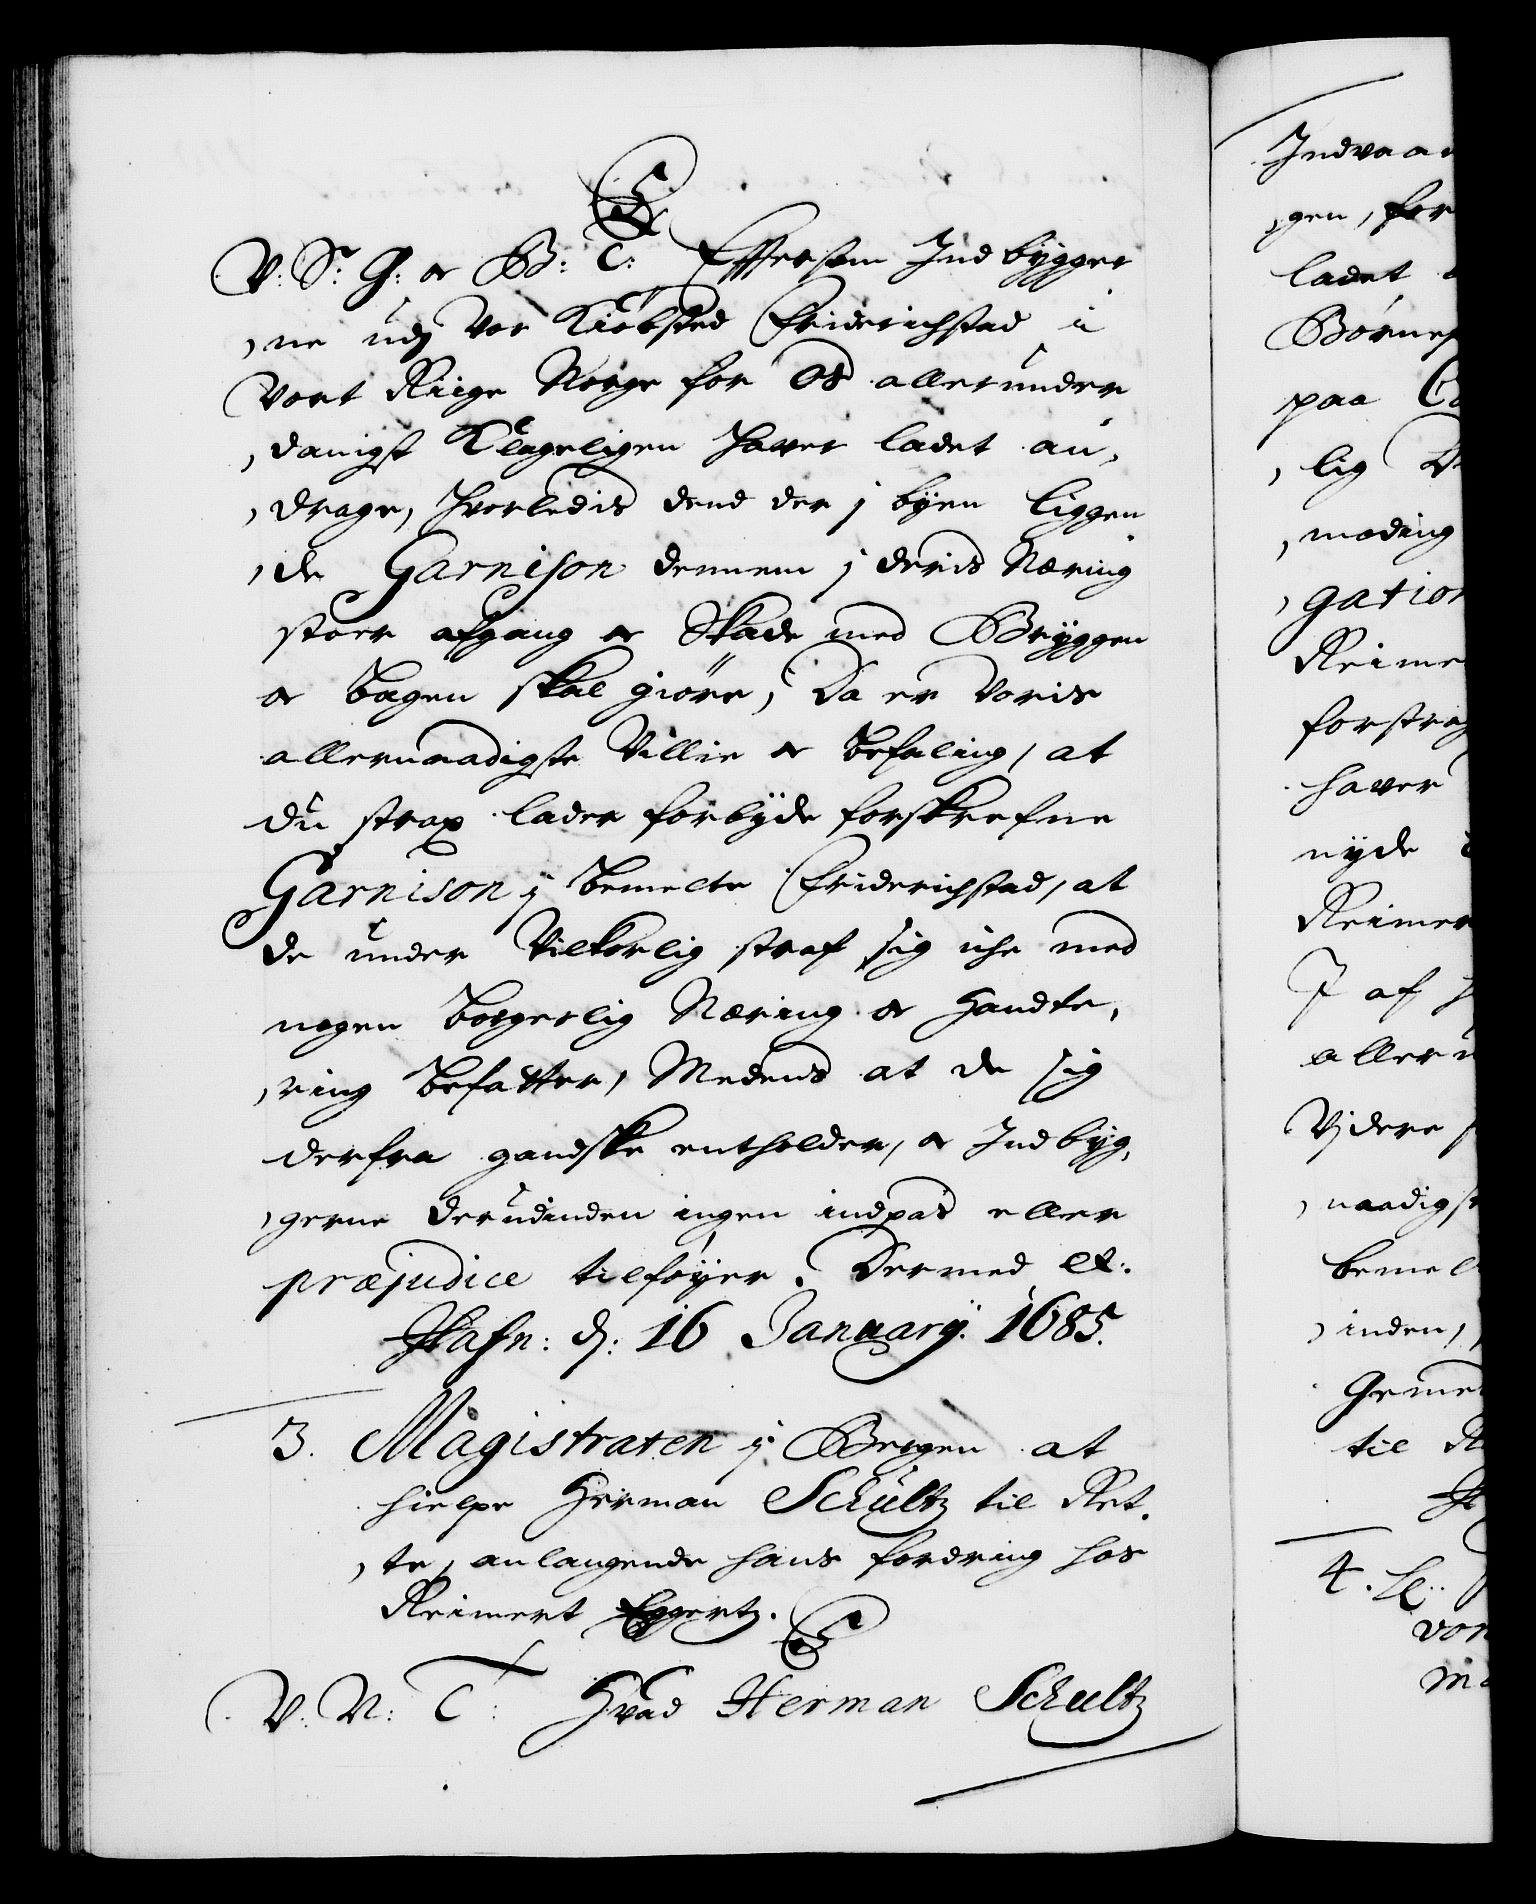 V: S: G: oc B: T: Efftersom Indbygger
ne udj Vor Kiöbsted Friderichstad i
Vort Riige Norge for Os allerunder
danigst Klageligen haver ladet an,
drage, hvorledis dend der j byen liggen
de Garnison dennem j deris Næring
stoer afgang oc Skade med Bryggen
oc Bagen skal giöre, Da er Voris
allernaadigste Villie oc Befaling, at
du strax lader forbyde forskrefne
Garnison j bemelte Friderichstad, at
de under Vilkorlig straf sig iche med
nogen borgerlig Næring oc Handte,
ring befatter, Medens at de sig
derfra gandske entholder, oc Indbyg,
gerne derudinden ingen indpas eller
præjudice tilföyer. Dermed et:
Hafn: d: 16 January: 1685.
3. Magistraten j Bergen at
hielpe Herman Schultz til Ret,
te, anlangende hans fordring hos
Reimert Eggertz.
V: N: T: Hvad Herman Schultz
Indvaa
gen, for
ladet
Börnep
paa
lig
moding
gation
Reime
forstrag
haver
nyde
Reimer
af
aller
Videre
naadigst
bemel
inden,
Geme
til
4.
von